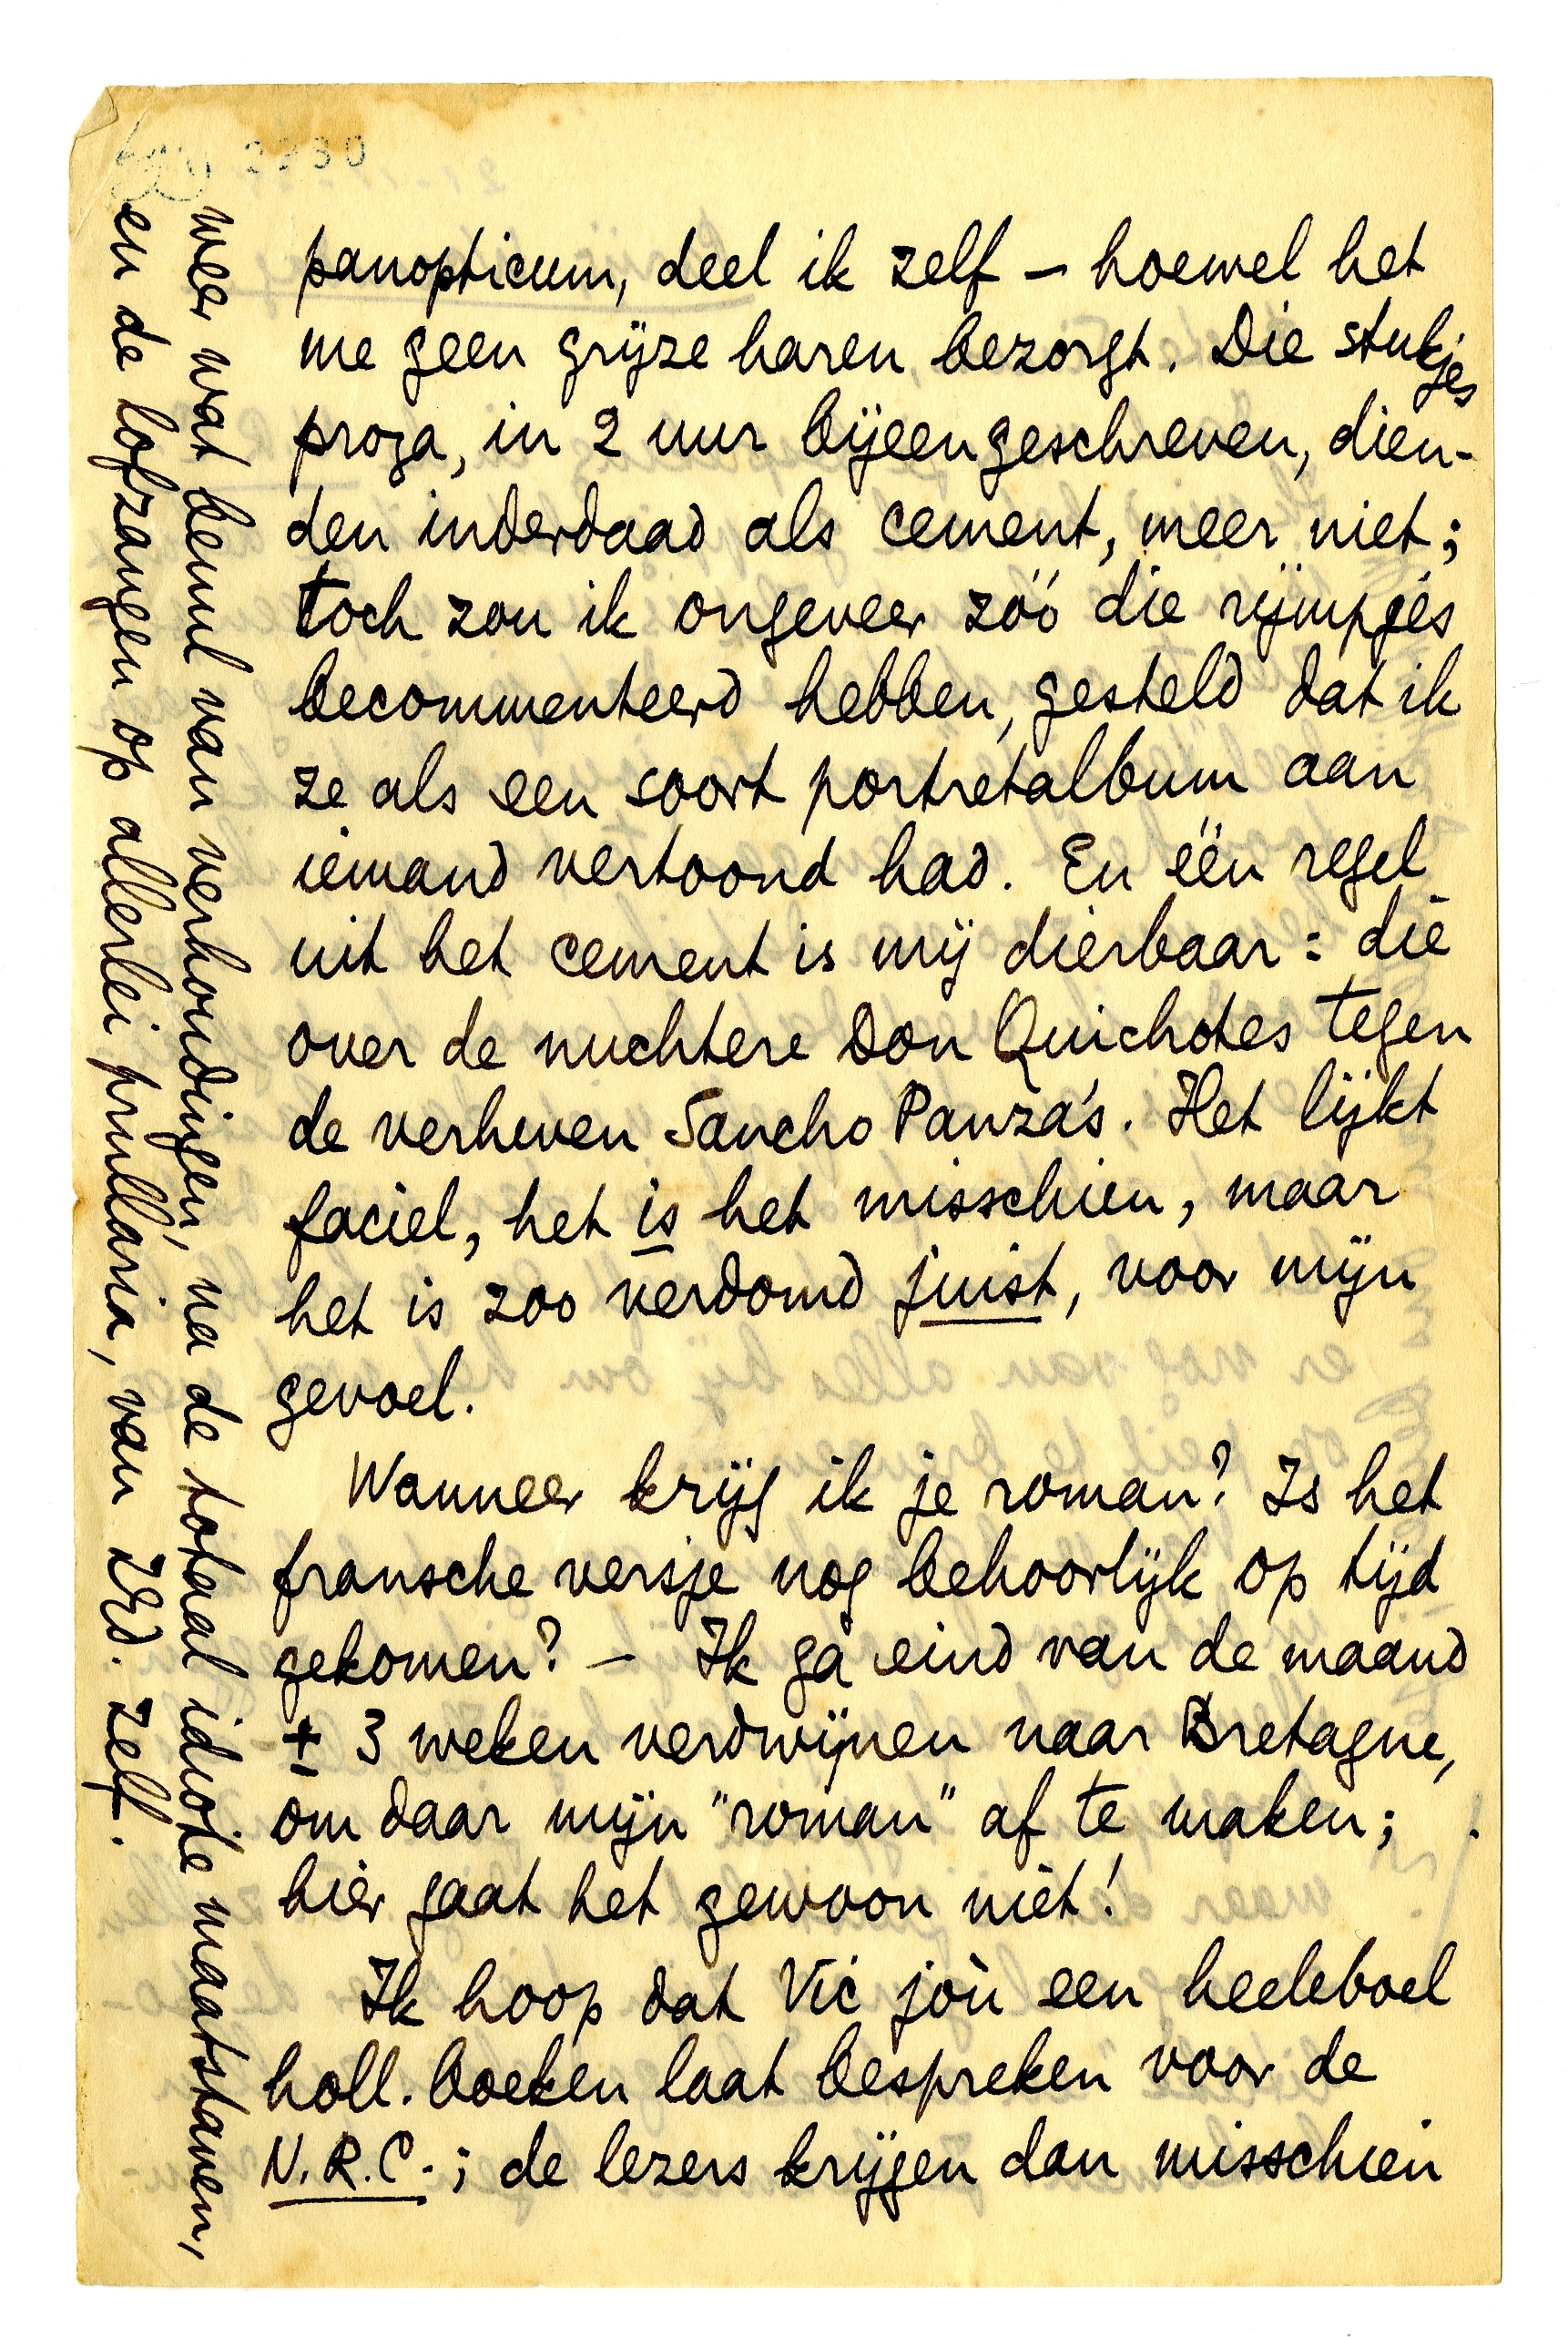 panopticum, deel ik zelf – hoewel het
me geen grijze haren bezorgt. Die stukjes
proza, in 2 uur bijeengeschreven, dien-
den inderdaad als cement, meer niet;
toch zou ik ongeveer zóó die rijmpjes
becommenteerd hebben, gesteld dat ik
ze als een soort portretalbum aan
iemand vertoond had. En één regel
uit het cement is mij dierbaar: die
over de nuchtere Don Quichotes tegen
de verheven Sancho Panza's. Het lijkt
faciel, het is het misschien, maar
het is zoo verdomd juist, voor mijn
gevoel.
Wanneer krijg ik je roman? Is het
fransche versje nog behoorlijk op tijd
gekomen? – Ik ga eind van de maand
± 3 weken verdwijnen naar Bretagne,
om daar mijn "roman" af te maken;
hier gaat het gewoon niet!
Ik hoop dat Vic jòu een heeleboel
holl. boeken laat bespreken voor de
N.R.C.; de lezers krijgen dan misschien
weer wat benul van verhoudingen, na de totaal idiote maatstaven,
en de lofzangen op allerlei prullaria, van zelf.